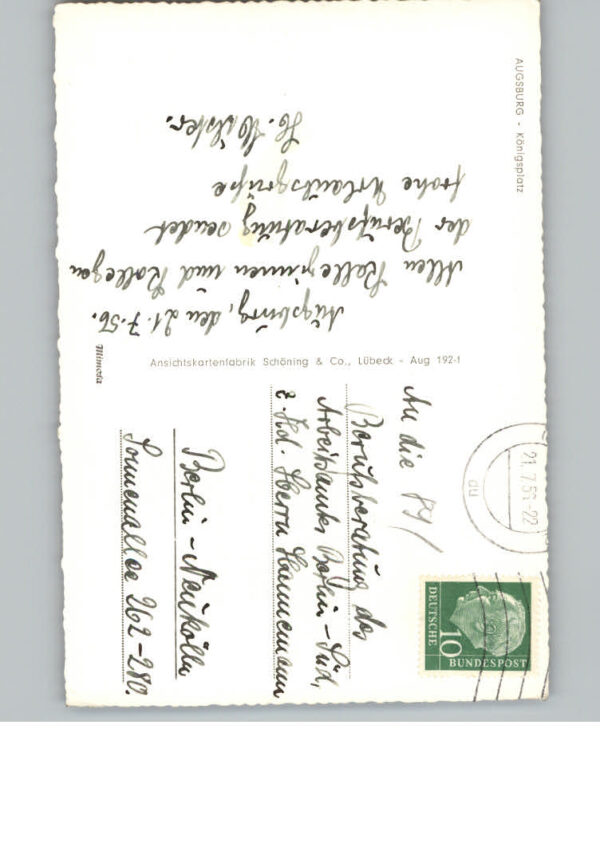 AUGSBURG - Königsplatz
Augsburg, den 21.7.56.
Allen Kolleginnen und Kollegen
der Berufsberatung sendet
frohe Urlaubsgrüße
Mimosa
Ansichtskartenfabrik Schöning & Co., Lübeck - Aug 192-1
21.7.56-22
DEUTSCHE
BUNDESPOST
10
An die
Berufsberatung des
Arbeitsamtes Berlin-Süd,
z. Hd. Herrn Hannemann
Berlin-Neukölln
Sonnenallee 262-280.